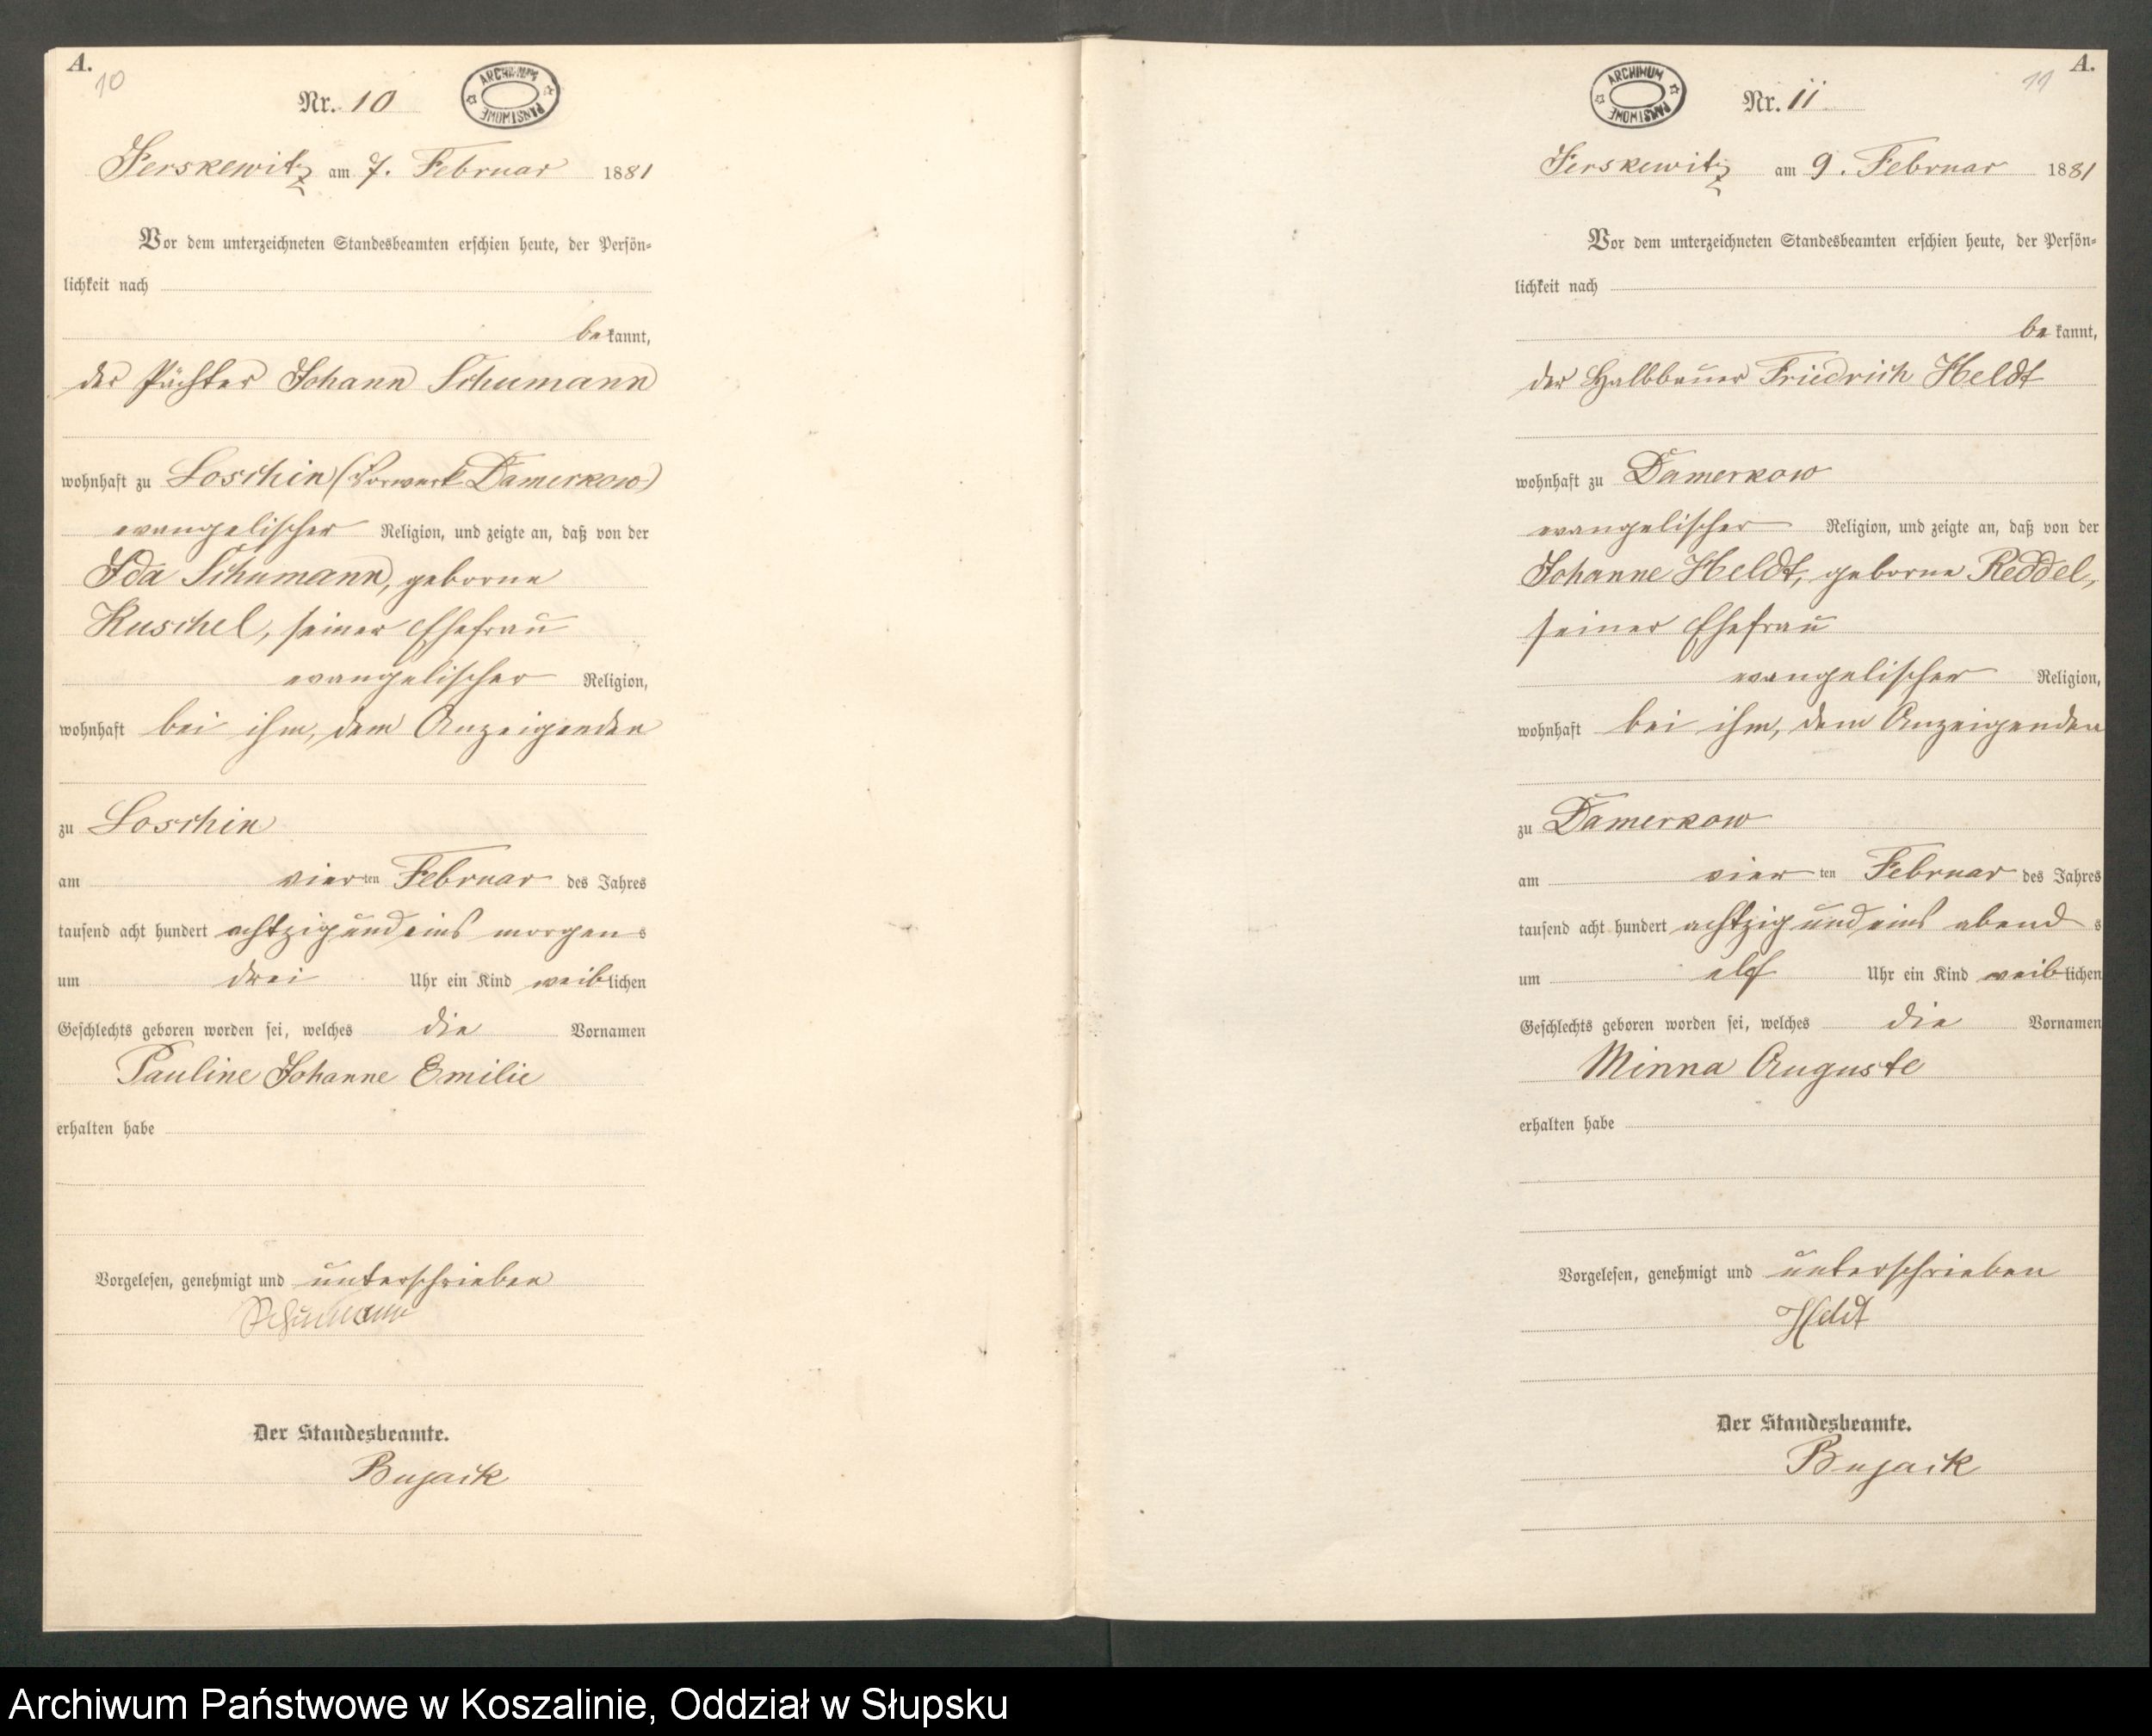 A.
10
Nr. 10
ARCHIWUM PAŃSTWOWE
Jerskewitz am 7. Februar 1881
Vor dem unterzeichneten Standesbeamten erschien heute, der Persön-
lichkeit nach
bekannt,
der Pächter Johann Schumann
wohnhaft zu Loschin (Vorwerk Damerkow)
evangelischer Religion, und zeigte an, daß von der
Ida Schumann, geborne
Kuschel, seiner Ehefrau
evangelischer Religion,
wohnhaft bei ihm, dem Anzeigenden
zu Loschin
am vierten Februar des Jahres
tausend acht hundert achtzig und eins morgens
um drei Uhr ein Kind weiblichen
Geschlechts geboren worden sei, welches die Vornamen
Pauline Johanne Emilie
erhalten habe
Vorgelesen, genehmigt und unterschrieben
Schumann
Der Standesbeamte.
Bujack
A.
11
ARCHIWUM PAŃSTWOWE
Nr. 11
Jerskewitz am 9. Februar 1881
Vor dem unterzeichneten Standesbeamten erschien heute, der Persön-
lichkeit nach
bekannt,
der Halbbauer Friedrich Heldt
wohnhaft zu Damerkow
evangelischer Religion, und zeigte an, daß von der
Johanne Heldt, geborne Reddel,
seiner Ehefrau
evangelischer Religion,
wohnhaft bei ihm, dem Anzeigenden
zu Damerkow
am vierten Februar des Jahres
tausend acht hundert achtzig und eins abends
um elf Uhr ein Kind weiblichen
Geschlechts geboren worden sei, welches die Vornamen
Minna Auguste
erhalten habe
Vorgelesen, genehmigt und unterschrieben
Heldt
Der Standesbeamte.
Bujack
Archiwum Państwowe w Koszalinie, Oddział w Słupsku